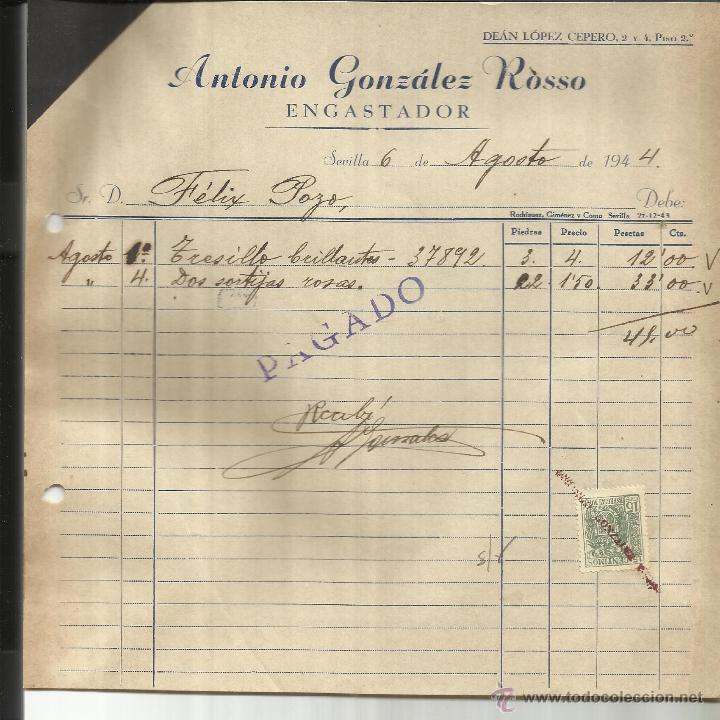 DEÁN LÓPEZ CEPERO, 2 Y 4, PISO 2.º
Antonio González Ròsso
ENGASTADOR
Sevilla 6 de Agosto de 1944.
Sr. D. Félix Pozo, Debe:
Rodríguez, Giménez y Comp. Sevilla 27-12-43
Piedras Precio Pesetas Cts.
Agosto 1º Tresillo brillantes - 37892. 3. 4. 12'00 V
" 4. Dos sortijas rosas. 22 1'50. 33'00 V
45.00
PAGADO
Recibí
A Gonzalez
15
CENTIMOS
GONZALEZ
www.todocoleccion.net